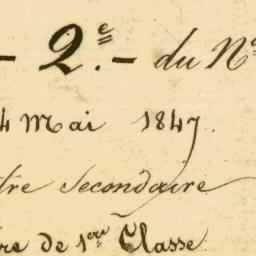 - 2e. - du No
4 Mai 1847.
tre Secondaire
re de 1ere Classe